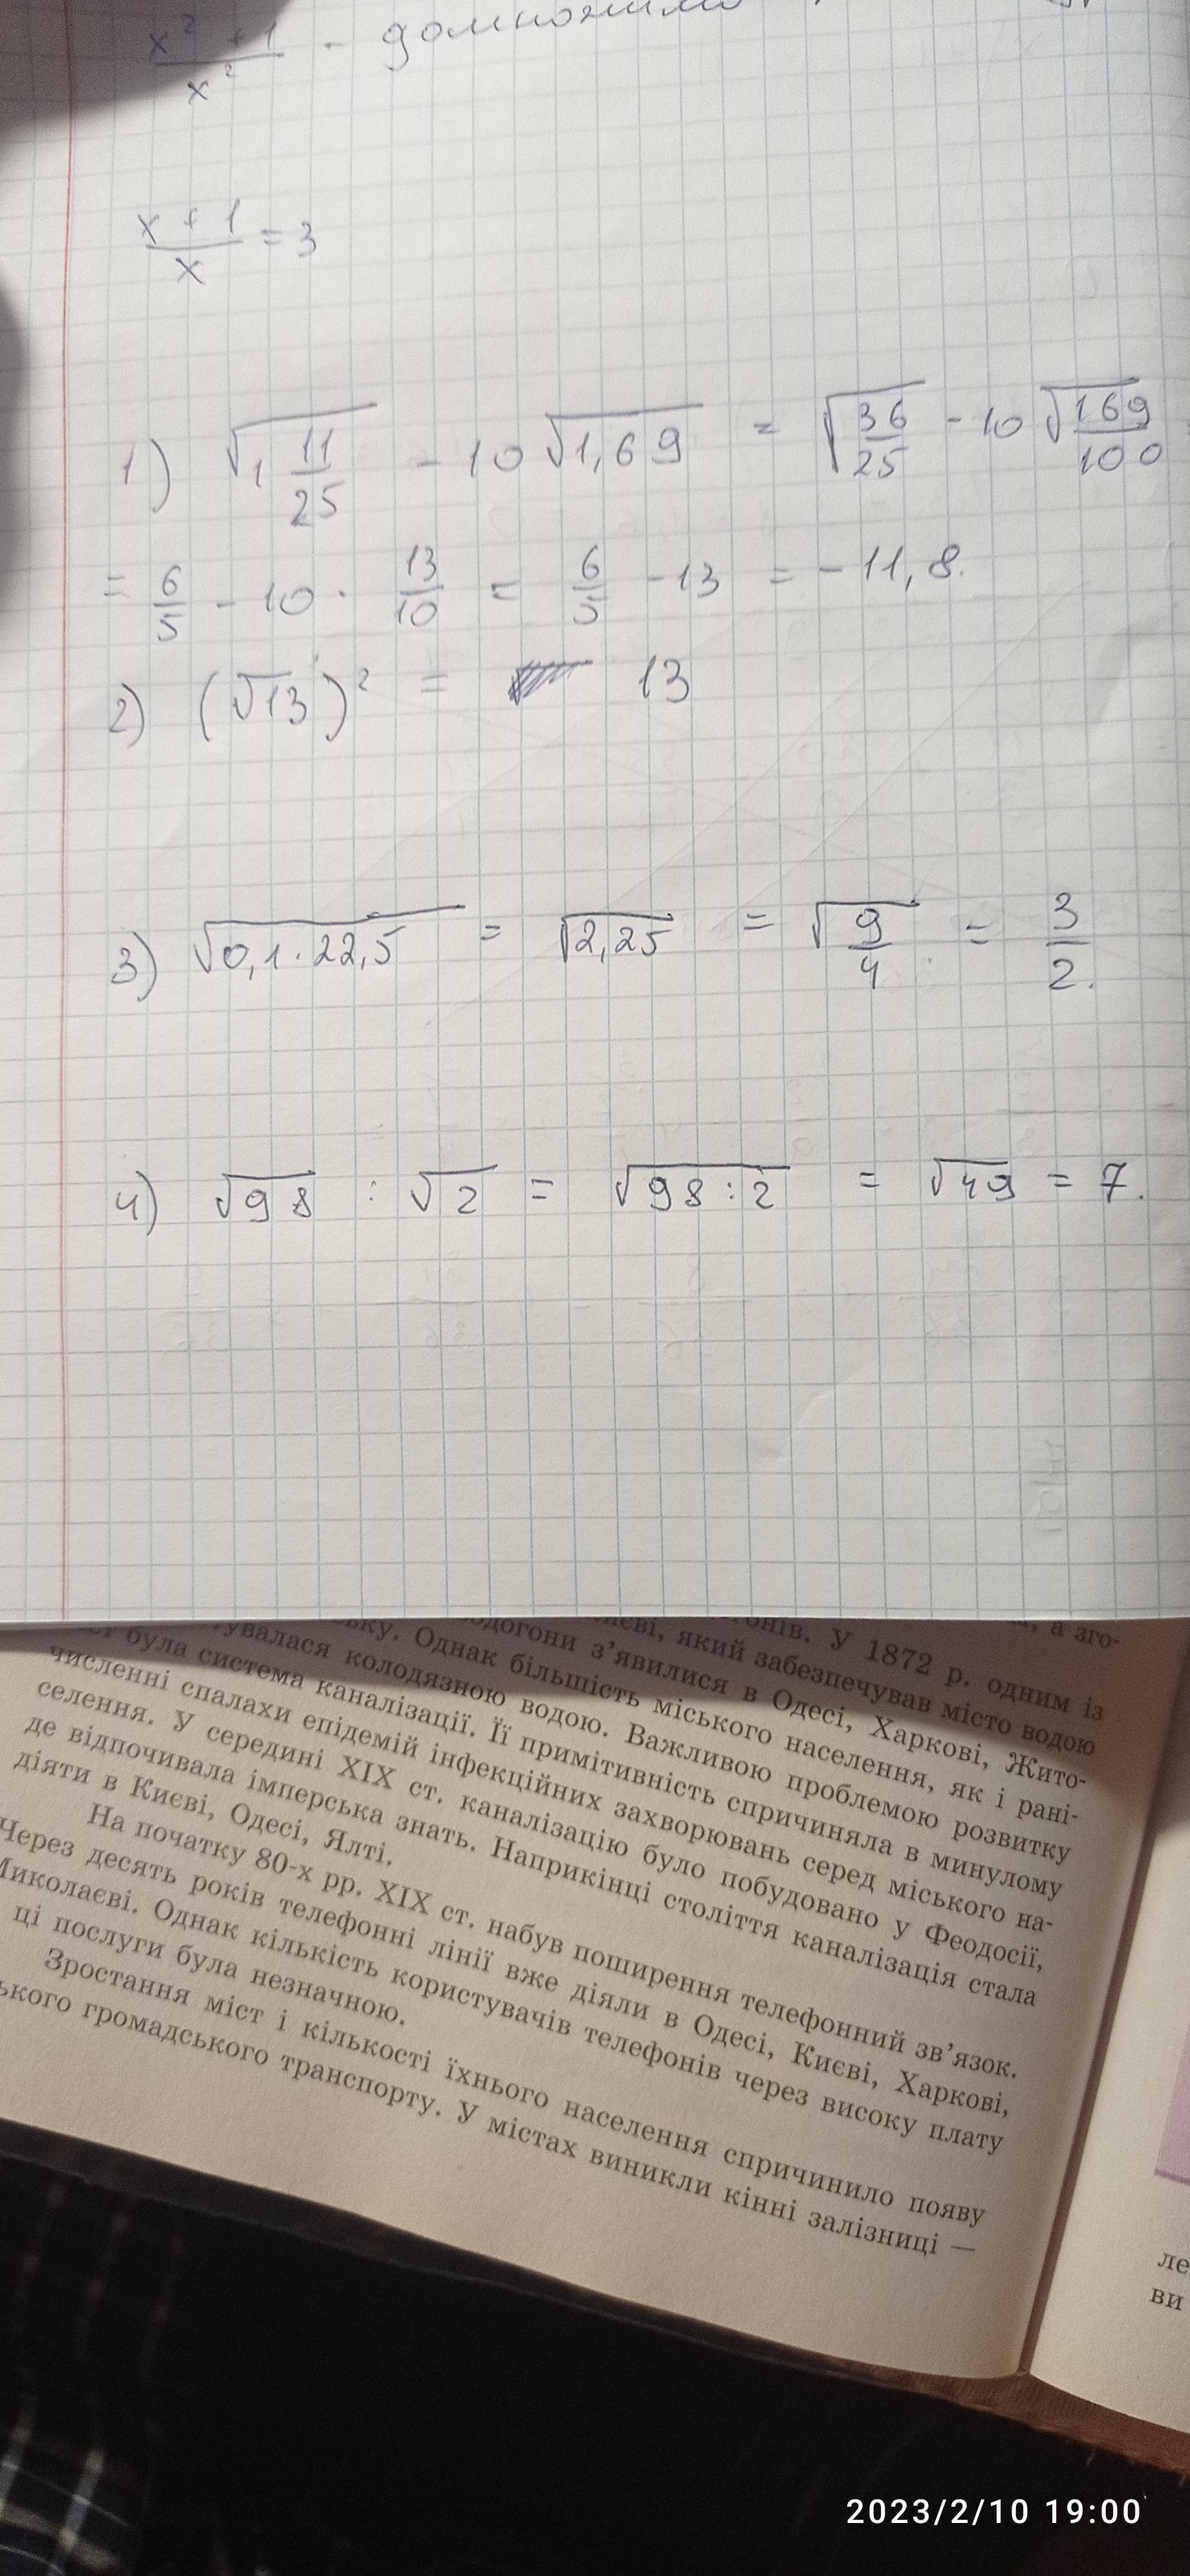 x² + 1 / x² - домножимо
x + 1 / x = 3
1) √(1 11/25) - 10√1,69 = √(36/25) - 10√(169/100) =
= 6/5 - 10 · 13/10 = 6/5 - 13 = - 11,8.
2) (√13)² = 13
3) √(0,1 · 22,5) = √2,25 = √(9/4) = 3/2.
4) √98 : √2 = √(98 : 2) = √49 = 7.
а зго-
У 1872 р. одним із
який забезпечував місто водою
з’явилися в Одесі, Харкові, Жито-
Однак більшість міського населення, як і рані-
колодязною водою. Важливою проблемою розвитку
була система каналізації. Її примітивність спричиняла в минулому
численні спалахи епідемій інфекційних захворювань серед міського на-
селення. У середині XIX ст. каналізацію було побудовано у Феодосії,
де відпочивала імперська знать. Наприкінці століття каналізація стала
діяти в Києві, Одесі, Ялті.
На початку 80-х рр. XIX ст. набув поширення телефонний зв’язок.
Через десять років телефонні лінії вже діяли в Одесі, Києві, Харкові,
Миколаєві. Однак кількість користувачів телефонів через високу плату
ці послуги була незначною.
Зростання міст і кількості їхнього населення спричинило появу
ького громадського транспорту. У містах виникли кінні залізниці —
ле
ви
2023/2/10 19:00